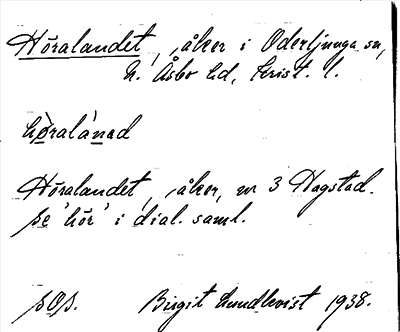 Höralandet, åker i Oderljunga sn,
N. Åsbo hd, Krist. l.
hö̀ralánad
Höralandet, åker, nr 3 Hagstad.
Se 'hör' i dial. saml.
SOS. Birgit Lundkvist 1938.